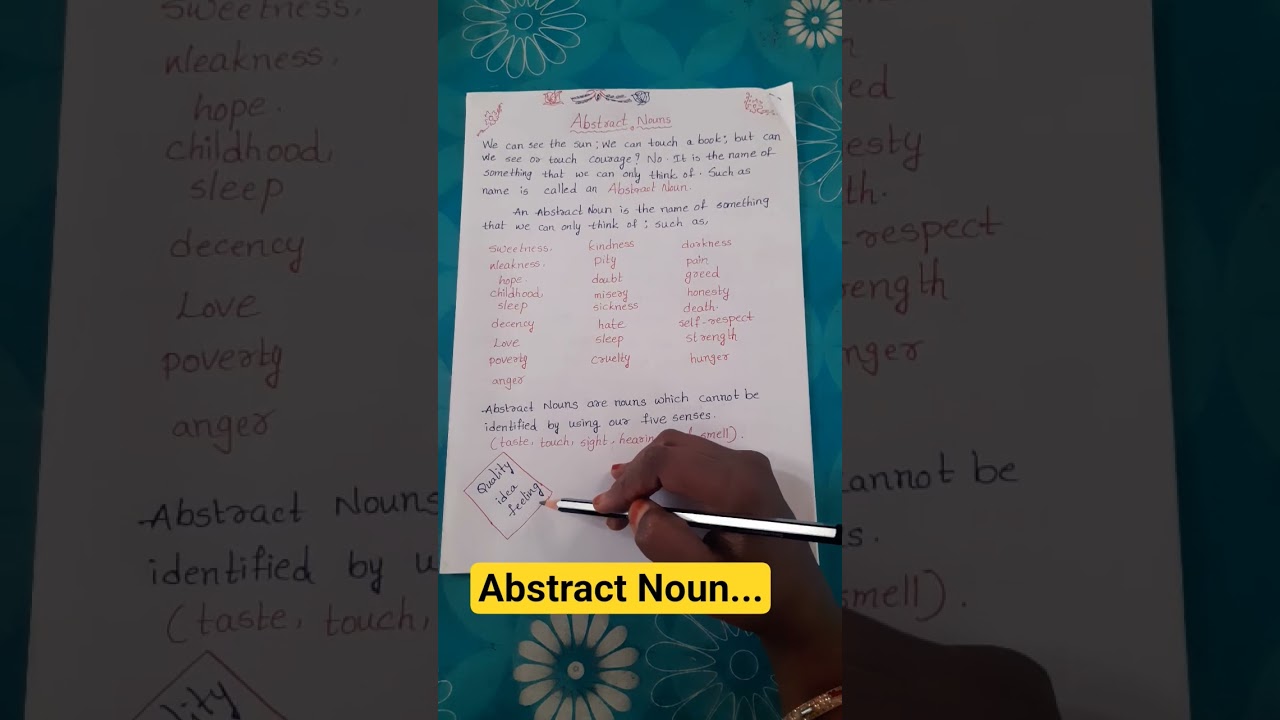 Abstract Nouns
We can see the sun; we can touch a book; but can
we see or touch courage? No. It is the name of
something that we can only think of. Such as
name is called an Abstract Noun.
An Abstract Noun is the name of something
that we can only think of; such as,
sweetness, kindness darkness
weakness, pity pain
hope. doubt greed
childhood, misery honesty
sleep sickness death.
decency hate self-respect
Love sleep strength
poverty cruelty hunger
anger
Abstract Nouns are nouns which cannot be
identified by using our five senses.
(taste, touch, sight, hearin smell).
Quality
idea
feeling
Abstract Noun...